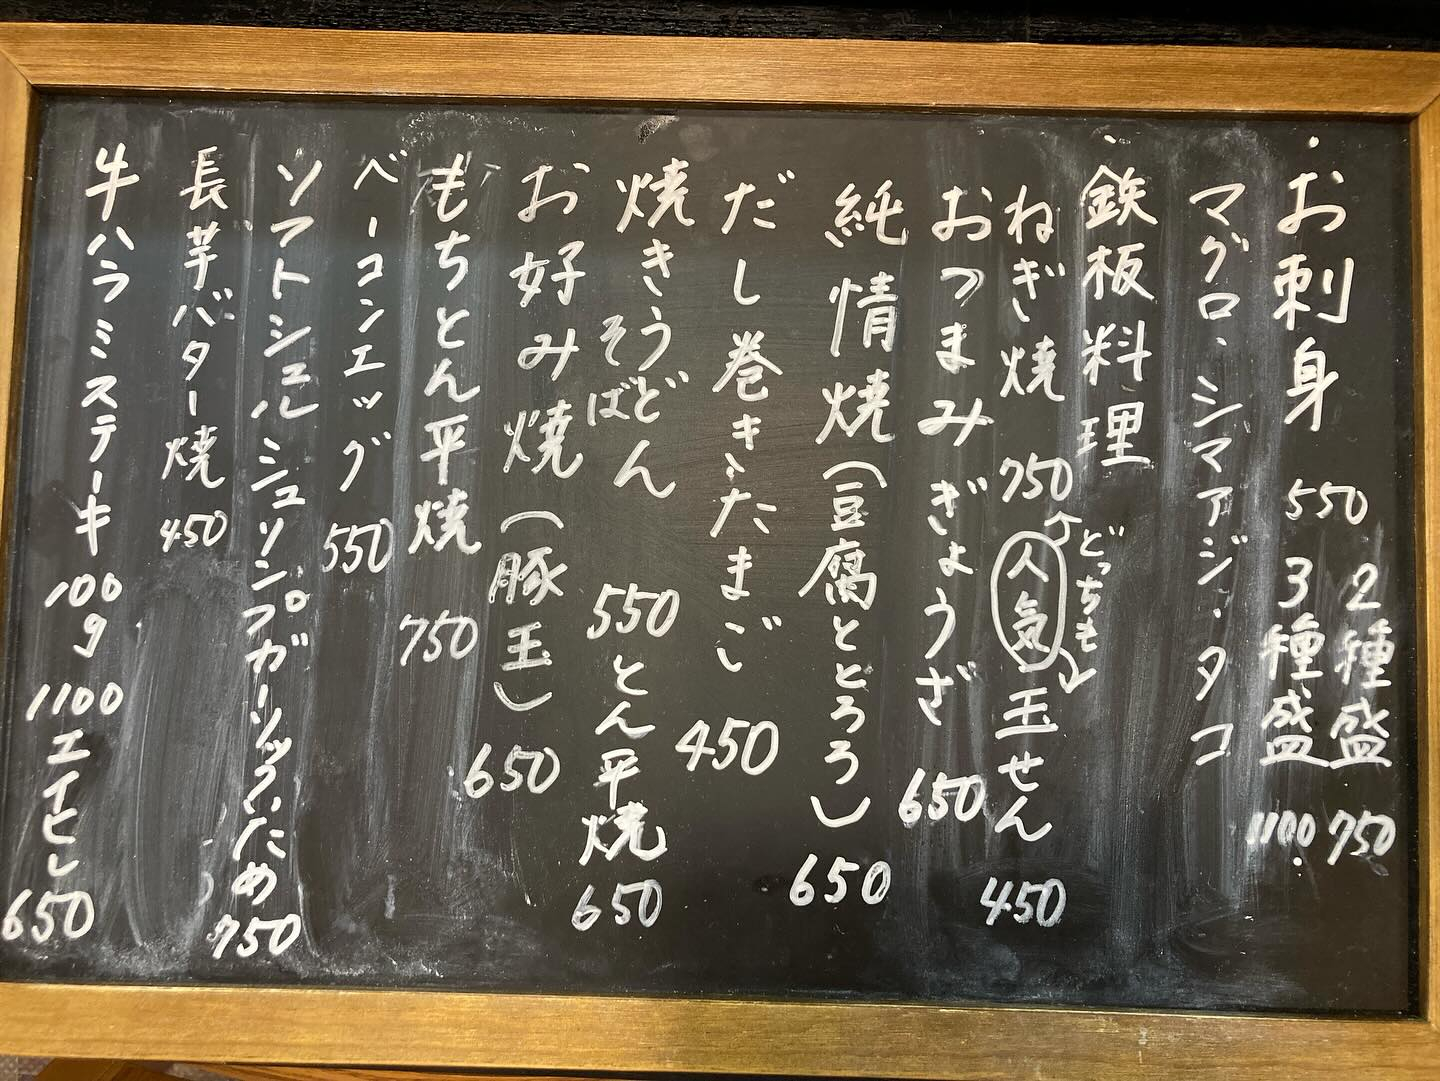 ・お刺身 550 2種盛 750
3種盛 1100
マグロ・シマアジ・タコ
・鉄板料理
ねぎ焼 750 人気 玉せん 450
どっちも
おつまみぎょうざ 650
純情焼(豆腐ととろろ) 650
だし巻きたまご 450
焼きうどん 550 とん平焼 650
そば
お好み焼(豚玉) 650
もちとん平焼 750
ベーコンエッグ 550
ソフトシェルシュリンプガーリックいため 750
長芋バター焼 450
牛ハラミステーキ 100g 1100 エイヒレ 650